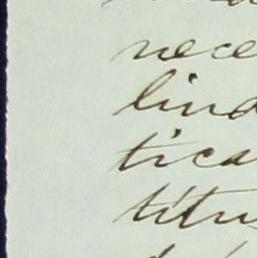 nece
lind
tica
titu